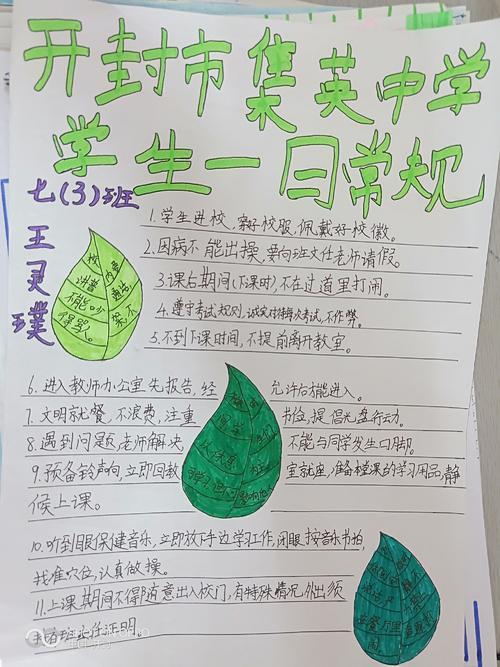 开封市集英中学
学生一日常规
七(3)班
王灵璞
1.学生进校,穿好校服,佩戴好校徽。
2.因病不能出操,要向班文任老师请假。
3.课后期间(下课时),不在过道里打闹。
4.遵守考试规则,诚实对待每次考试,不作弊。
5.不到下课时间,不提前离开教室。
校内要
讲普通话,
不能吵
架不
得骂。
6.进入教师办公室先报告,经允许后才能进入。
7.文明就餐,不浪费,注重节俭,提倡光盘行动。
8.遇到问题,老师解决,不能与同学发生口脚。
9.预备铃声响,立即回教室就座,准备相应课的学习用品,静
候上课。
10.听到眼保健音乐,立即放下手边学习工作,闭眼按音乐节拍,
找准穴位,认真做操。
11.上课期间不得随意出入校门,有特殊情况,外出须
班主任证明